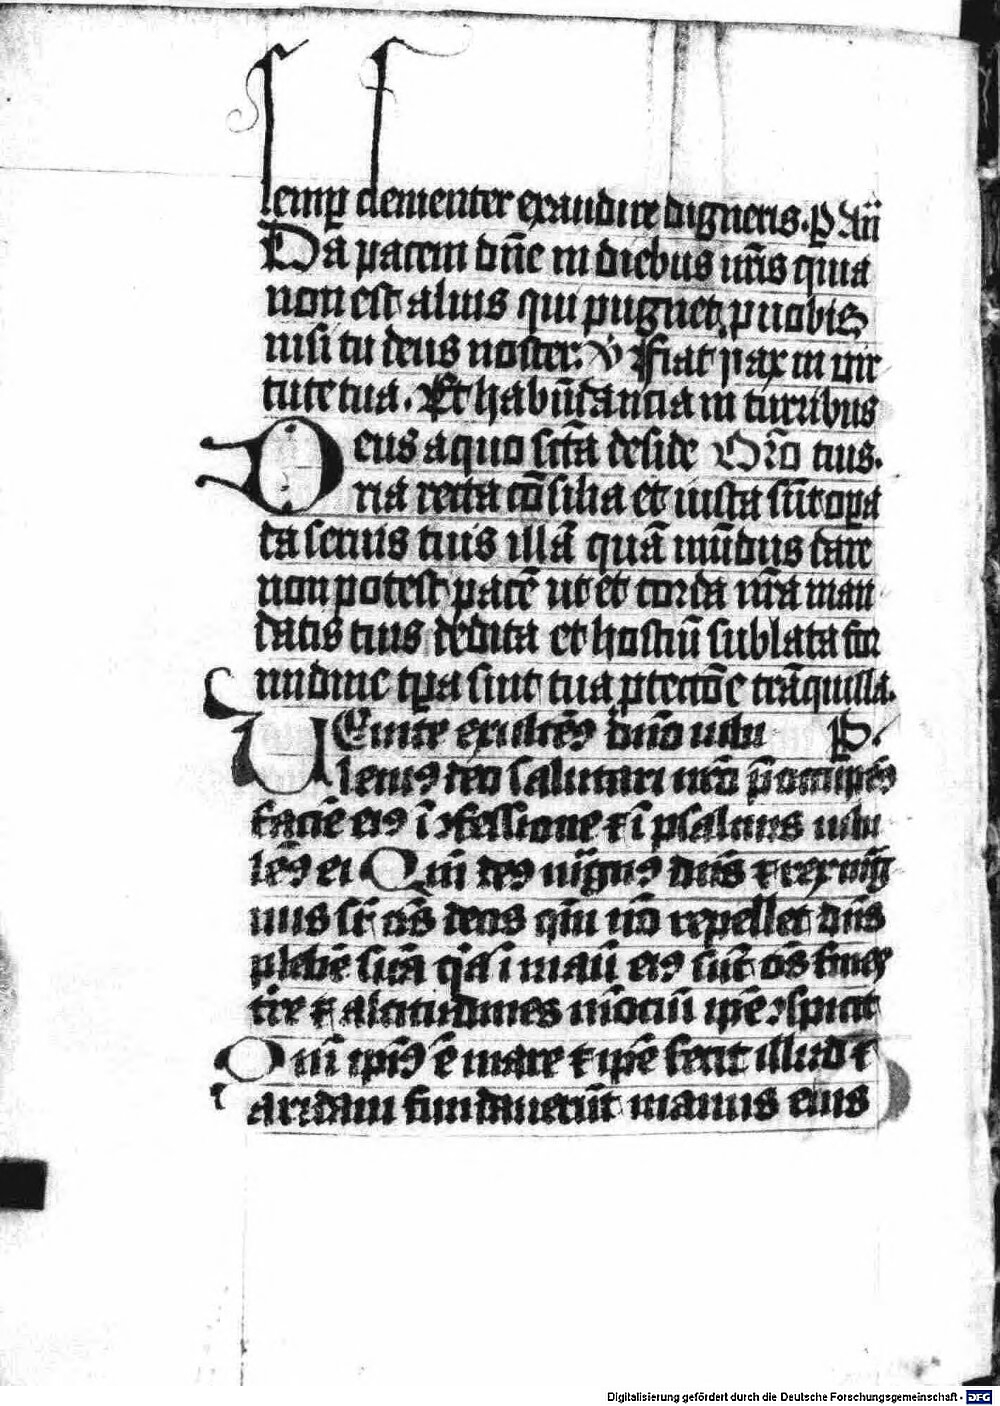 semꝑ clementer exaudire digneris. P Añ
Da pacem dñe in diebus nr̃is quia
non est alius qui pugnet p nobis
nisi tu deus noster. V̾ Fiat pax in vir
tute tua. Et habũdancia in turribus
Deus a quo sct̃a deside Or̃o tuis.
ria recta cõsilia et iusta sũt opa
da seruis tuis illã quã mũdus dare
non potest pacẽ ut et corda nr̃a man
datis tuis dedita et hostiũ sublata for
midine tꝑa sint tua ꝓtectõe trãquilla.
UEnite exultemꝰ dño iubi P.
lemꝰ deo salutari nr̃o p̃occupemꝰ
faciẽ eiꝰ ĩ ꝯfessione ⁊ ĩ psalmis iubi
lẽꝰ ei Qm̃ deꝰ magnꝰ dñs ⁊ rex mag
nus sr̃ oẽs deos qm̃ nõ repellet dñs
plebẽ suã q̃a ĩ manũ eiꝰ sũt oẽs fines
tr̃e ⁊ altitudines mõciũ ip̃e ꝯspicit
Qm̃ ip̃iꝰ ẽ mare ⁊ ip̃e fecit illud ⁊
aridam fundauerũt manus eius
Digitalisierung gefördert durch die Deutsche Forschungsgemeinschaft - DFG